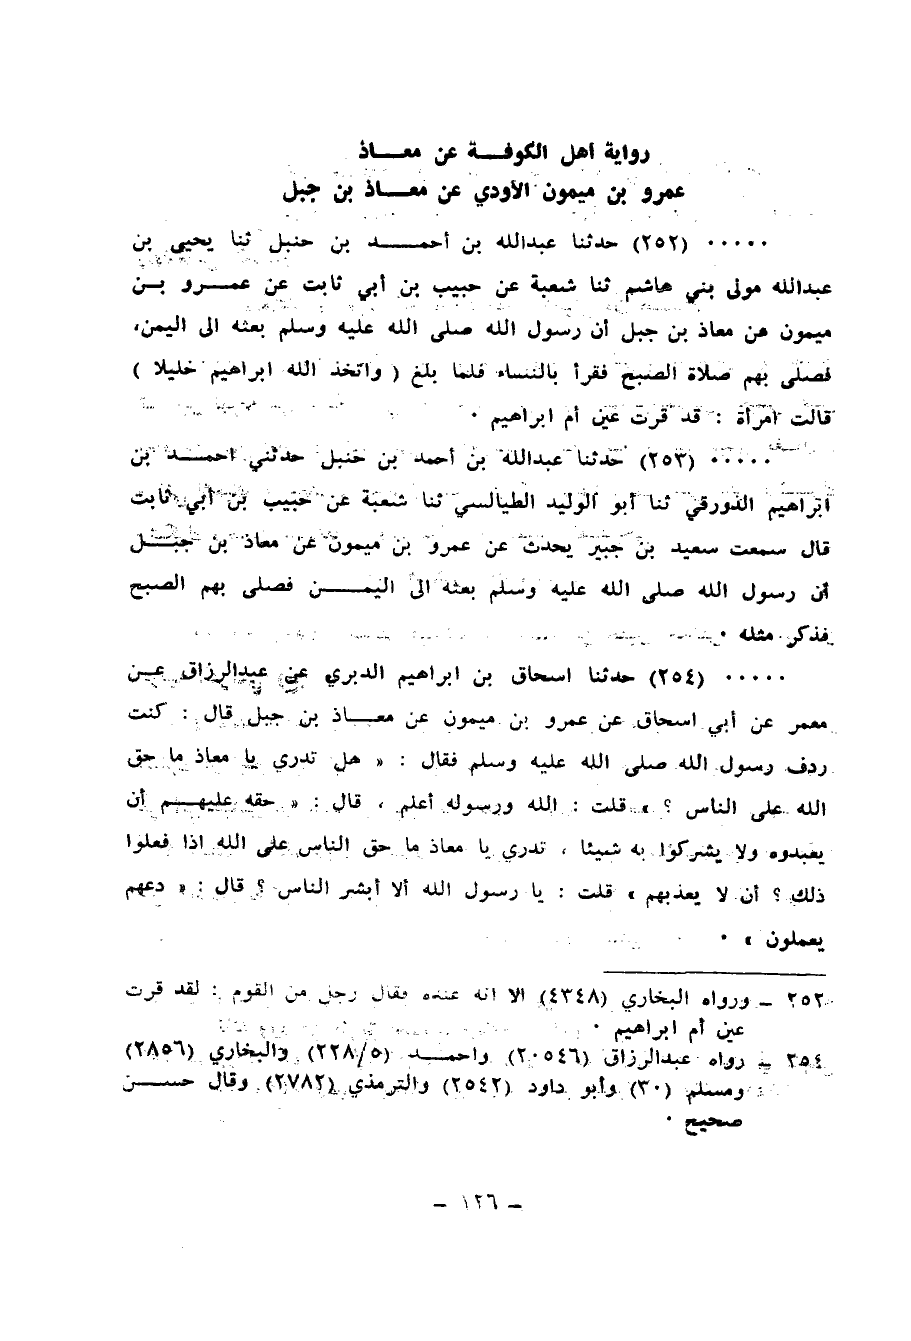 رواية أهل الكوفة عن معاذ
عمرو بن ميمون الأودي عن معاذ بن جبل
٠٠٠٠٠ (٢٥٢) حدثنا عبدالله بن أحمد بن حنبل ثنا يحيى بن
عبدالله مولى بني هاشم ثنا شعبة عن حبيب بن أبي ثابت عن عمرو بن
ميمون عن معاذ بن جبل أن رسول الله صلى الله عليه وسلم بعثه الى اليمن،
فصلى بهم صلاة الصبح فقرأ بالنساء فلما بلغ ( واتخذ الله ابراهيم خليلا )
قالت امرأة : قد قرت عين أم ابراهيم ٠
٠٠٠٠٠ (٢٥٣) حدثنا عبدالله بن أحمد بن حنبل حدثني احمد بن
ابراهيم الدورقي ثنا أبو الوليد الطيالسي ثنا شعبة عن حبيب بن أبي ثابت
قال سمعت سعيد بن جبير يحدث عن عمرو بن ميمون عن معاذ بن جبل
أن رسول الله صلى الله عليه وسلم بعثه الى اليمن فصلى بهم الصبح
فذكر مثله ٠
٠٠٠٠٠ (٢٥٤) حدثنا اسحاق بن ابراهيم الدبري عن عبدالرزاق عن
معمر عن أبي اسحاق عن عمرو بن ميمون عن معاذ بن جبل قال : كنت
ردف رسول الله صلى الله عليه وسلم فقال : « هل تدري يا معاذ ما حق
الله على الناس ؟ » قلت : الله ورسوله أعلم ، قال : « حقه عليهم أن
يعبدوه ولا يشركوا به شيئا ، تدري يا معاذ ما حق الناس على الله اذا فعلوا
ذلك ؟ أن لا يعذبهم » قلت : يا رسول الله ألا أبشر الناس ؟ قال : « دعهم
يعملون » ٠
٢٥٢ – ورواه البخاري (٤٣٤٨) الا انه عنده فقال رجل من القوم : لقد قرت
عين أم ابراهيم ٠
٢٥٤ – رواه عبدالرزاق (٢٠٥٤٦) واحمد (٢٢٨/٥) والبخاري (٢٨٥٦)
ومسلم (٣٠) وأبو داود (٢٥٤٢) والترمذي (٢٧٨٢) وقال حسن
صحيح ٠
– ١٢٦ –